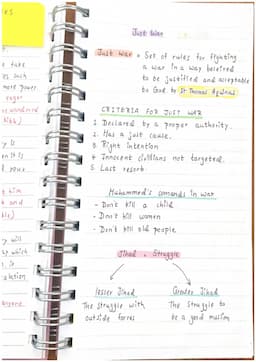 Just War
Just War → Set of rules for fighting
a war in a way believed
to be justified and acceptable
to God by St Thomas Aquinas.
CRITERIA FOR JUST WAR
1. Declared by a proper authority.
2. Has a just cause.
3. Right Intention
4 Innocent civilians not targeted.
5 Last resort.
Muhammed's comands in war
- Don't kill a child
- Don't kill women
- Don't kill old people.
Jihad = Struggle
lesser Jihad
The struggle with
outside forces
Greater Jihad
The struggle to
be a good muslim